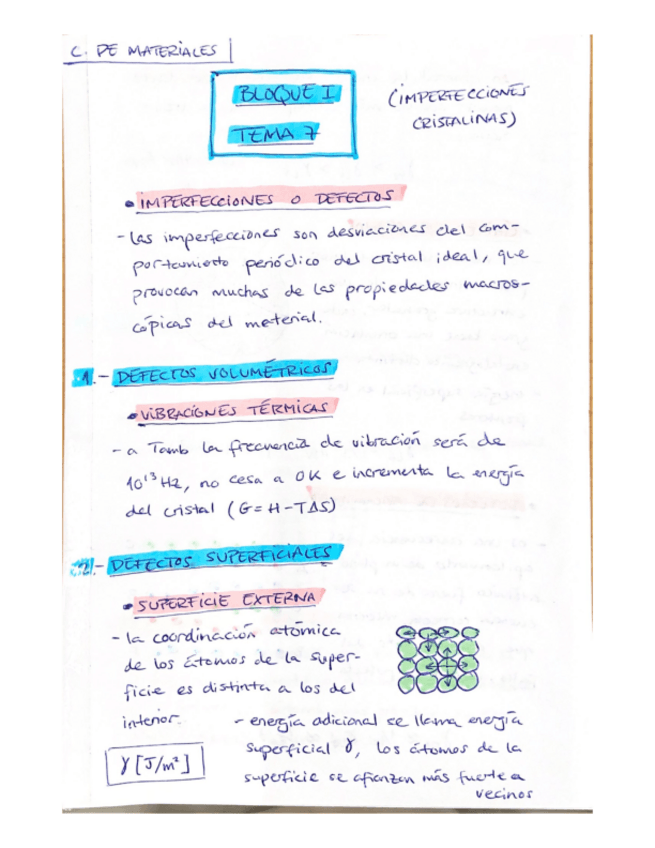 C. DE MATERIALES
BLOQUE I
TEMA 7
(IMPERFECCIONES
CRISTALINAS)
• IMPERFECCIONES O DEFECTOS
- las imperfecciones son desviaciones del com-
portamiento periódico del cristal ideal, que
provocan muchas de las propiedades macros-
cópicas del material.
1.- DEFECTOS VOLUMÉTRICOS
• VIBRACIONES TÉRMICAS
- a Tamb la frecuencia de vibración será de
10¹³ Hz, no cesa a 0K e incrementa la energía
del cristal (G = H - TΔS)
2.- DEFECTOS SUPERFICIALES
• SUPERFICIE EXTERNA
- la coordinación atómica
de los átomos de la super-
ficie es distinta a los del
interior.
- energía adicional se llama energía
superficial γ, los átomos de la
superficie se afianzan más fuerte a
vecinos
γ [J/m²]